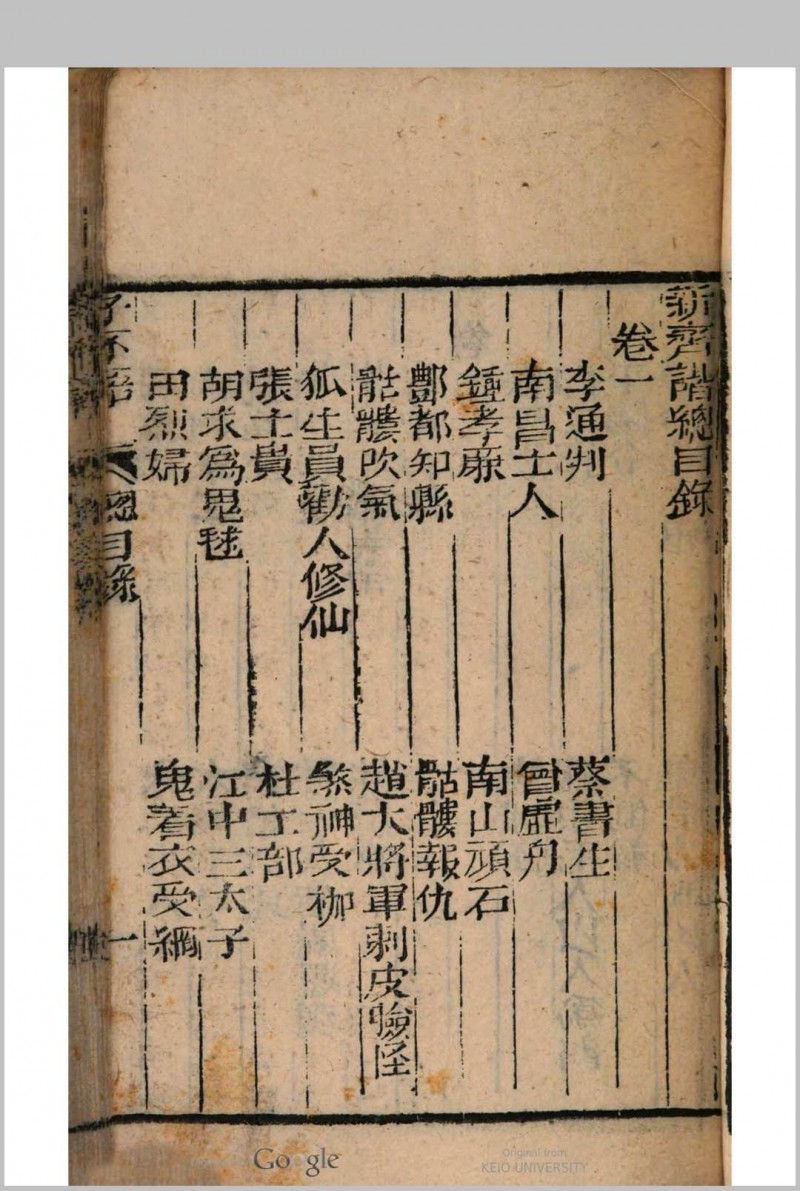 新齊諧總目錄
卷一
李通判 蔡書生
南昌士人 曾虛舟
鍾孝廉 南山頑石
酆都知縣 骷髏報仇
骷髏吹氣 趙大將軍刺皮臉怪
狐生員勸人修仙 煞神受枷
張士貴 杜工部
胡求為鬼毬 江中三太子
田烈婦 鬼着衣受網
子不語 總目錄 一
Google
Original from
KEIO UNIVERSITY